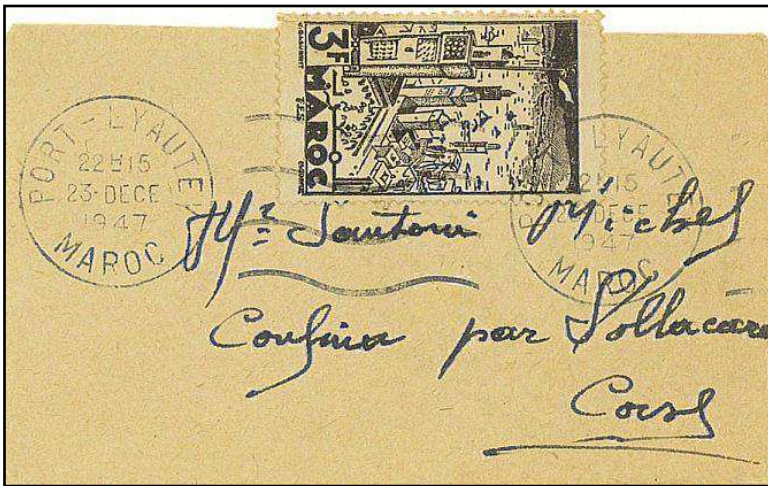 3F MAROC
PORT-LYAUTEY
22H15
23-DECE
1947
MAROC
LYAUTEY
22H15
DECE
1947
MAROC
Mr Santoni Michel
Confina par Sollacaro
Corse